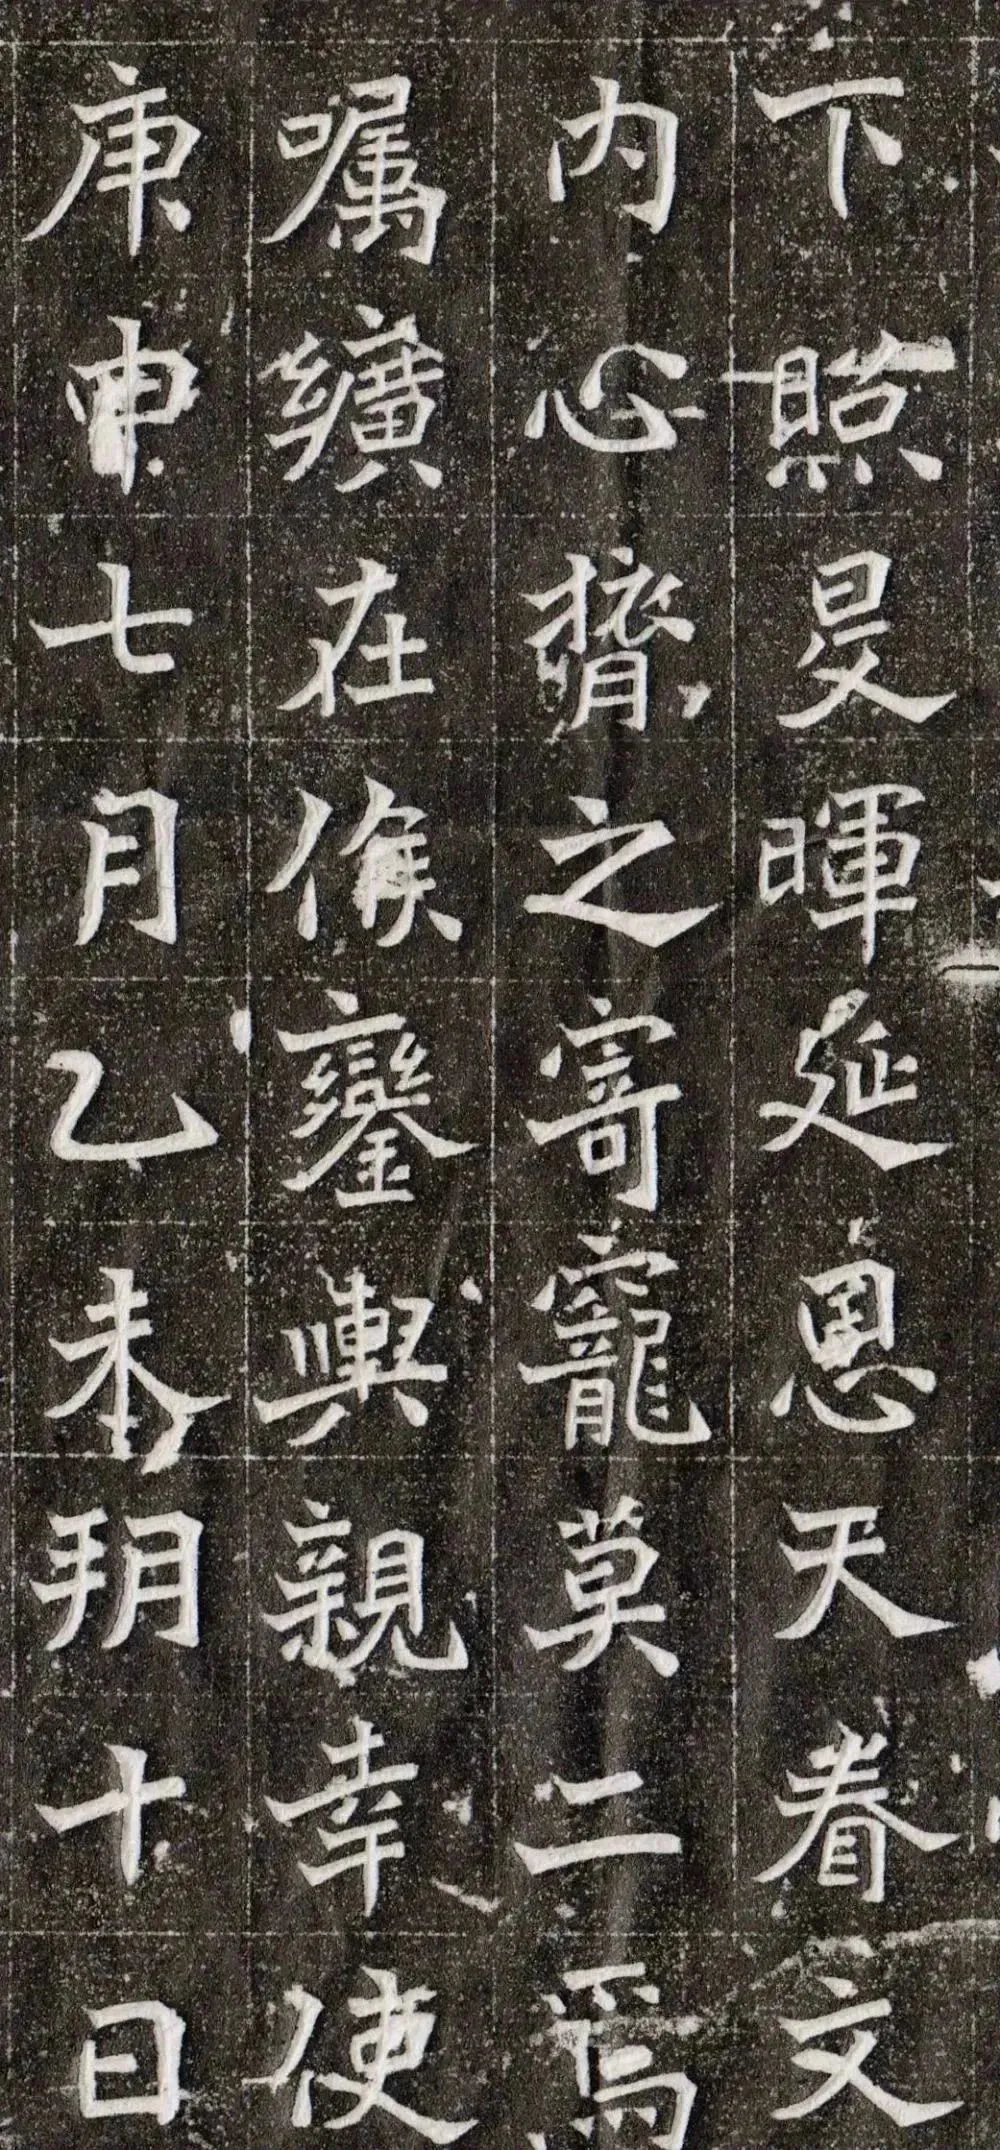 下照旻暉延恩天眷文
内心膂之寄寵莫二焉
嘱纊在候鑾輿親幸使
庚申七月乙未朔十日